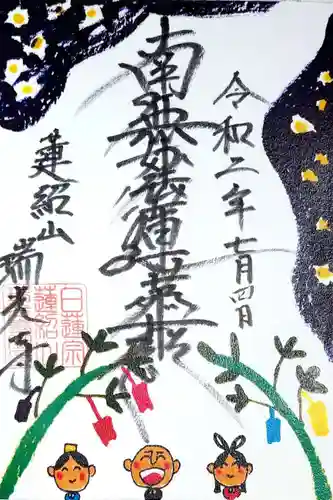 令和二年七月四日
南無妙法蓮華経
蓮紹山
瑞光寺
日蓮宗
蓮紹山